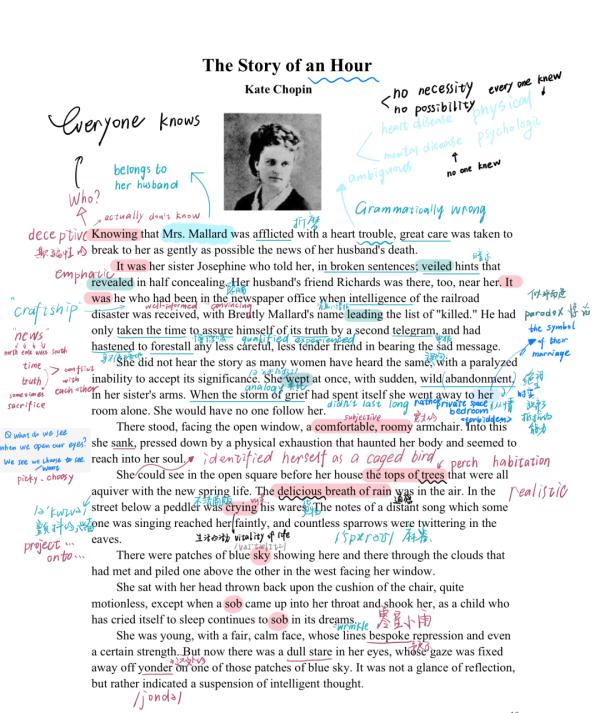 The Story of an Hour
Kate Chopin
no necessity every one knew
no possibility
heart disease physical
mental disease psychologic
ambiguous no one knew
Everyone knows
belongs to
her husband
Who?
actually don't know
Grammatically wrong
deceptive
Knowing that Mrs. Mallard was afflicted with a heart trouble, great care was taken to
break to her as gently as possible the news of her husband's death.
emphatic
It was her sister Josephine who told her, in broken sentences; veiled hints that
revealed in half concealing. Her husband's friend Richards was there, too, near her. It
was he who had been in the newspaper office when intelligence of the railroad
"craftship"
well-informed convincing
disaster was received, with Brently Mallard's name leading the list of "killed." He had
only taken the time to assure himself of its truth by a second telegram, and had
qualified experienced
hastened to forestall any less careful, less tender friend in bearing the sad message.
"news"
north east west south
time
truth
conflict
with
each other
sometimes
sacrifice
paradox
the symbol
of their
marriage
She did not hear the story as many women have heard the same, with a paralyzed
inability to accept its significance. She wept at once, with sudden, wild abandonment,
in her sister's arms. When the storm of grief had spent itself she went away to her
didn't last long
private space
bedroom
<forbidden>
room alone. She would have no one follow her.
subjective
There stood, facing the open window, a comfortable, roomy armchair. Into this
she sank, pressed down by a physical exhaustion that haunted her body and seemed to
reach into her soul.
identified herself as a caged bird
perch habitation
Q what do we see
when we open our eyes?
We see we choose to see
want
picky-choosy
She could see in the open square before her house the tops of trees that were all
aquiver with the new spring life. The delicious breath of rain was in the air. In the
realistic
street below a peddler was crying his wares. The notes of a distant song which some
one was singing reached her faintly, and countless sparrows were twittering in the
eaves.
vitality of life
麻雀
project...
onto...
There were patches of blue sky showing here and there through the clouds that
had met and piled one above the other in the west facing her window.
She sat with her head thrown back upon the cushion of the chair, quite
motionless, except when a sob came up into her throat and shook her, as a child who
has cried itself to sleep continues to sob in its dreams.
wrinkle
She was young, with a fair, calm face, whose lines bespoke repression and even
a certain strength. But now there was a dull stare in her eyes, whose gaze was fixed
away off yonder on one of those patches of blue sky. It was not a glance of reflection,
but rather indicated a suspension of intelligent thought.
/jondə/